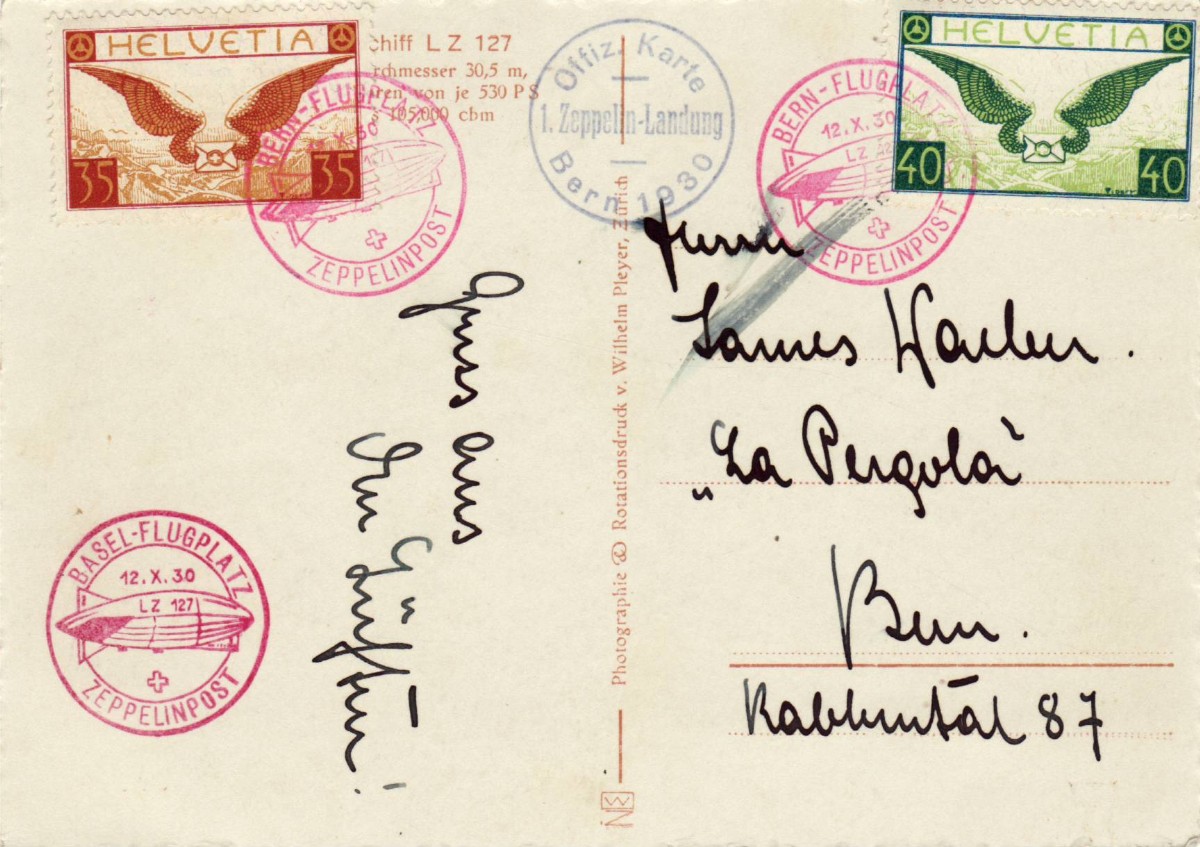 HELVETIA
35 35
chiff LZ 127
rchmesser 30,5 m,
ren von je 530 PS
105,000 cbm
BERN-FLUGPLATZ
X.30
ZEPPELINPOST
Offiz. Karte
1. Zeppelin-Landung
Bern 1930
BERN-FLUGPLATZ
12.X.30
LZ
ZEPPELINPOST
HELVETIA
40 40
Gruss aus
den Lüften!
BASEL-FLUGPLATZ
12.X.30
LZ 127
ZEPPELINPOST
Photographie & Rotationsdruck v. Wilhelm Pleyer, Zürich
Herrn
James
„La Pergola“
Bern.
Rabbental 87